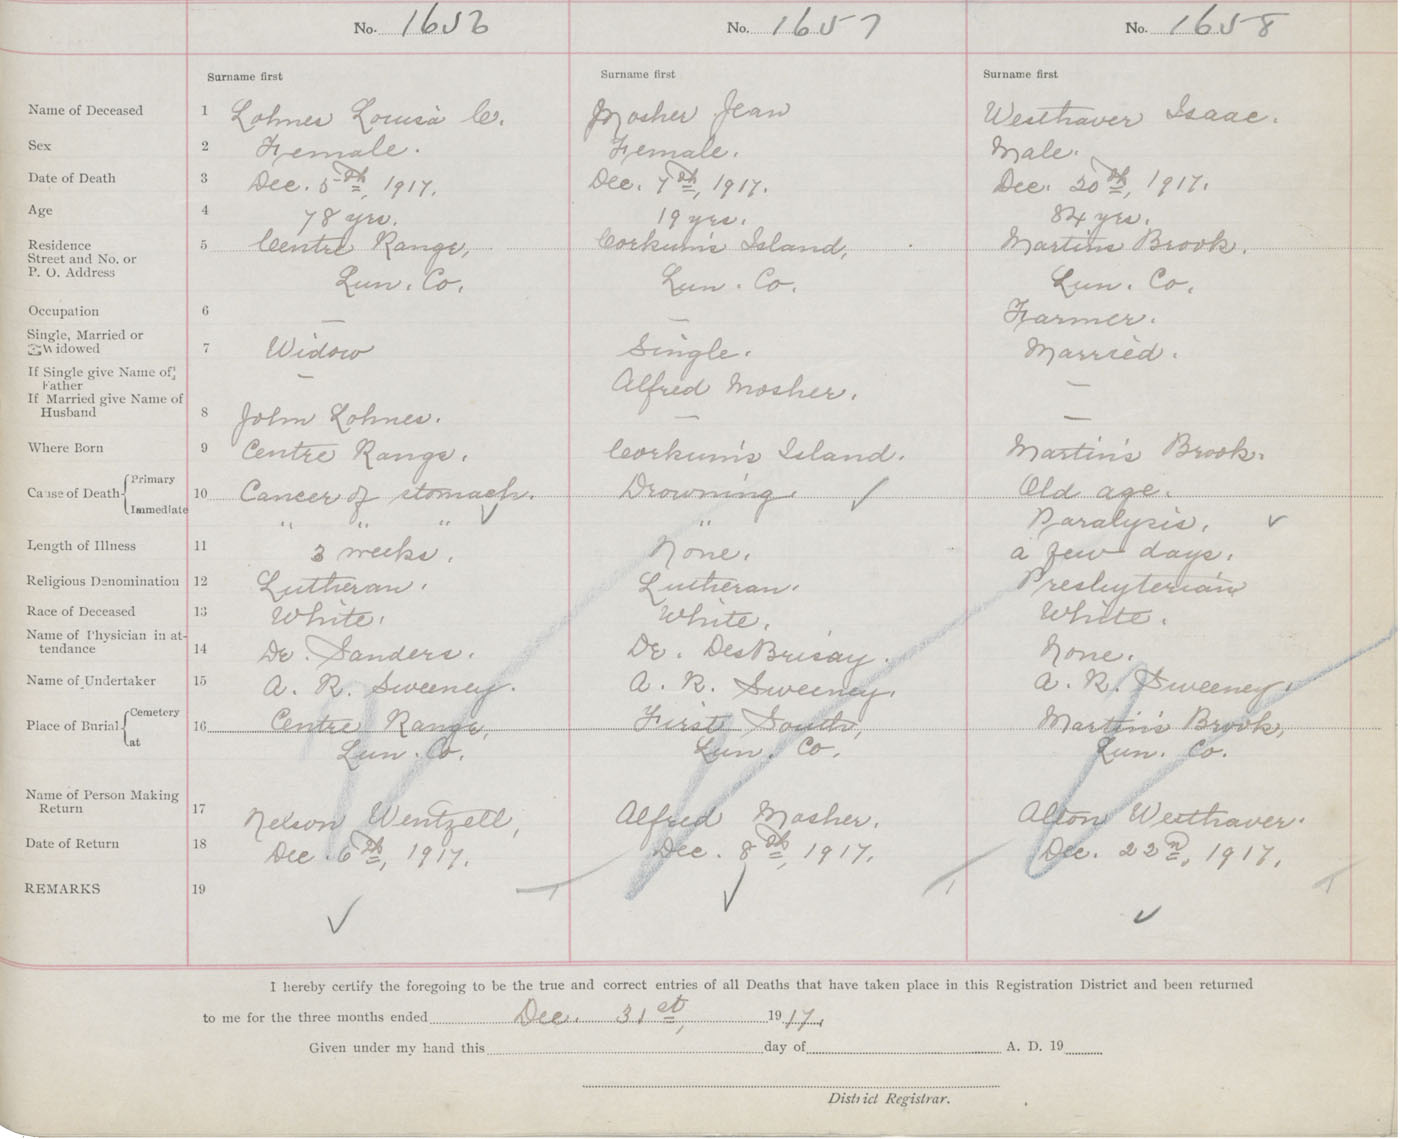 No. 1656 No. 1657 No. 1658
Surname first Surname first Surname first
Name of Deceased 1 Lohnes Louisa C. Mosher Jean Westhaver Isaac.
Sex 2 Female. Female. Male.
Date of Death 3 Dec. 5th, 1917. Dec. 7th, 1917. Dec. 20th, 1917.
Age 4 78 yrs. 19 yrs. 84 yrs.
Residence 5 Centre Range, Corkum's Island, Martins Brook.
Street and No. or
P. O. Address Lun. Co. Lun. Co. Lun. Co.
Occupation 6 — — Farmer.
Single, Married or
Widowed 7 Widow Single. Married.
If Single give Name of
Father — Alfred Mosher. —
If Married give Name of
Husband 8 John Lohnes. — —
Where Born 9 Centre Range. Corkum's Island. Martin's Brook.
Cause of Death { Primary 10 Cancer of stomach. Drowning. Old age.
Immediate " " " " Paralysis.
Length of Illness 11 3 weeks. None. a few days.
Religious Denomination 12 Lutheran. Lutheran. Presbyterian
Race of Deceased 13 White. White. White.
Name of Physician in at-
tendance 14 Dr. Sanders. Dr. DesBrisay. None.
Name of Undertaker 15 A. R. Sweeney. A. R. Sweeney. A. R. Sweeney.
Place of Burial { Cemetery 16 Centre Range, First South, Martin's Brook,
at Lun. Co. Lun. Co. Lun. Co.
Name of Person Making
Return 17 Nelson Wentzell, Alfred Mosher. Alton Westhaver.
Date of Return 18 Dec. 6th, 1917. Dec. 8th, 1917. Dec. 22n, 1917.
REMARKS 19
I hereby certify the foregoing to be the true and correct entries of all Deaths that have taken place in this Registration District and been returned
to me for the three months ended Dec. 31st, 1917.
Given under my hand this day of A. D. 19
District Registrar.